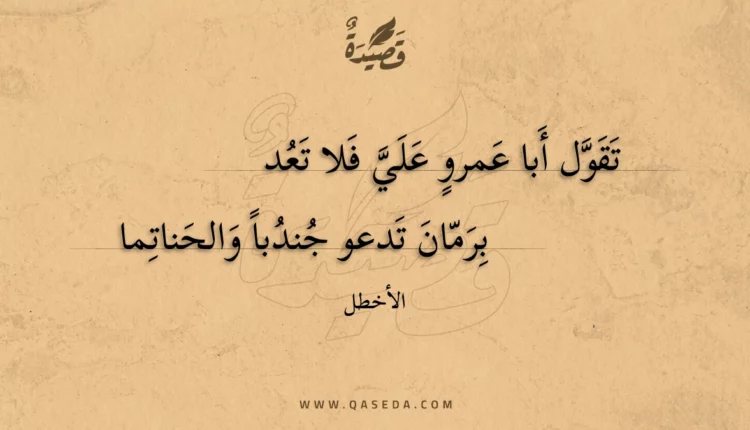 قَصِيْدَةٌ
تَقَوَّل أَبا عَمروٍ عَلَيَّ فَلا تَعُد
بِرَمّانَ تَدعو جُندُباً وَالحَناتِما
الأخطل
WWW.QASEDA.COM